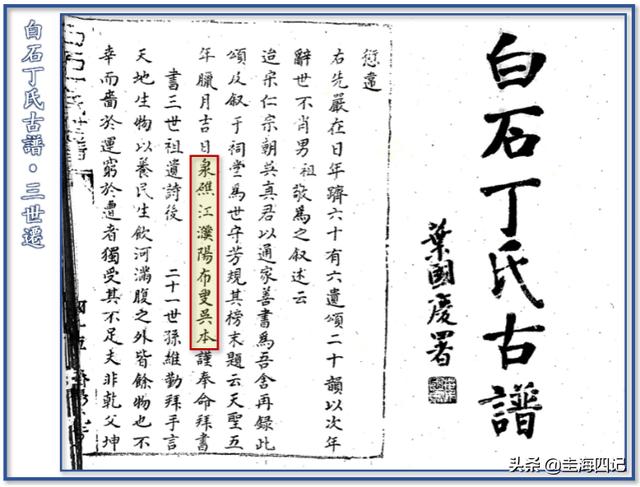 白石丁氏古譜
葉國慶署
愆違
右先嚴在日年躋六十有六遺頌二十韻以次年
辭世不肖男祖敬為之叙述云
迨宋仁宗朝吳真君以通家善書為吾舍再錄此
頌及叙于祠堂為世守芳規其榜末題云天聖五
年臘月吉日泉礁江濮陽布叟吳本謹奉命拜書
書三世祖遺詩後 二十一世孫維勤拜手言
天地生物以養民生飲河滿腹之外皆餘物也不
幸而嗇於運窮於遭者獨受其不足夫非乾父坤
白石丁氏古譜·三世遷
头条 @圭海四记